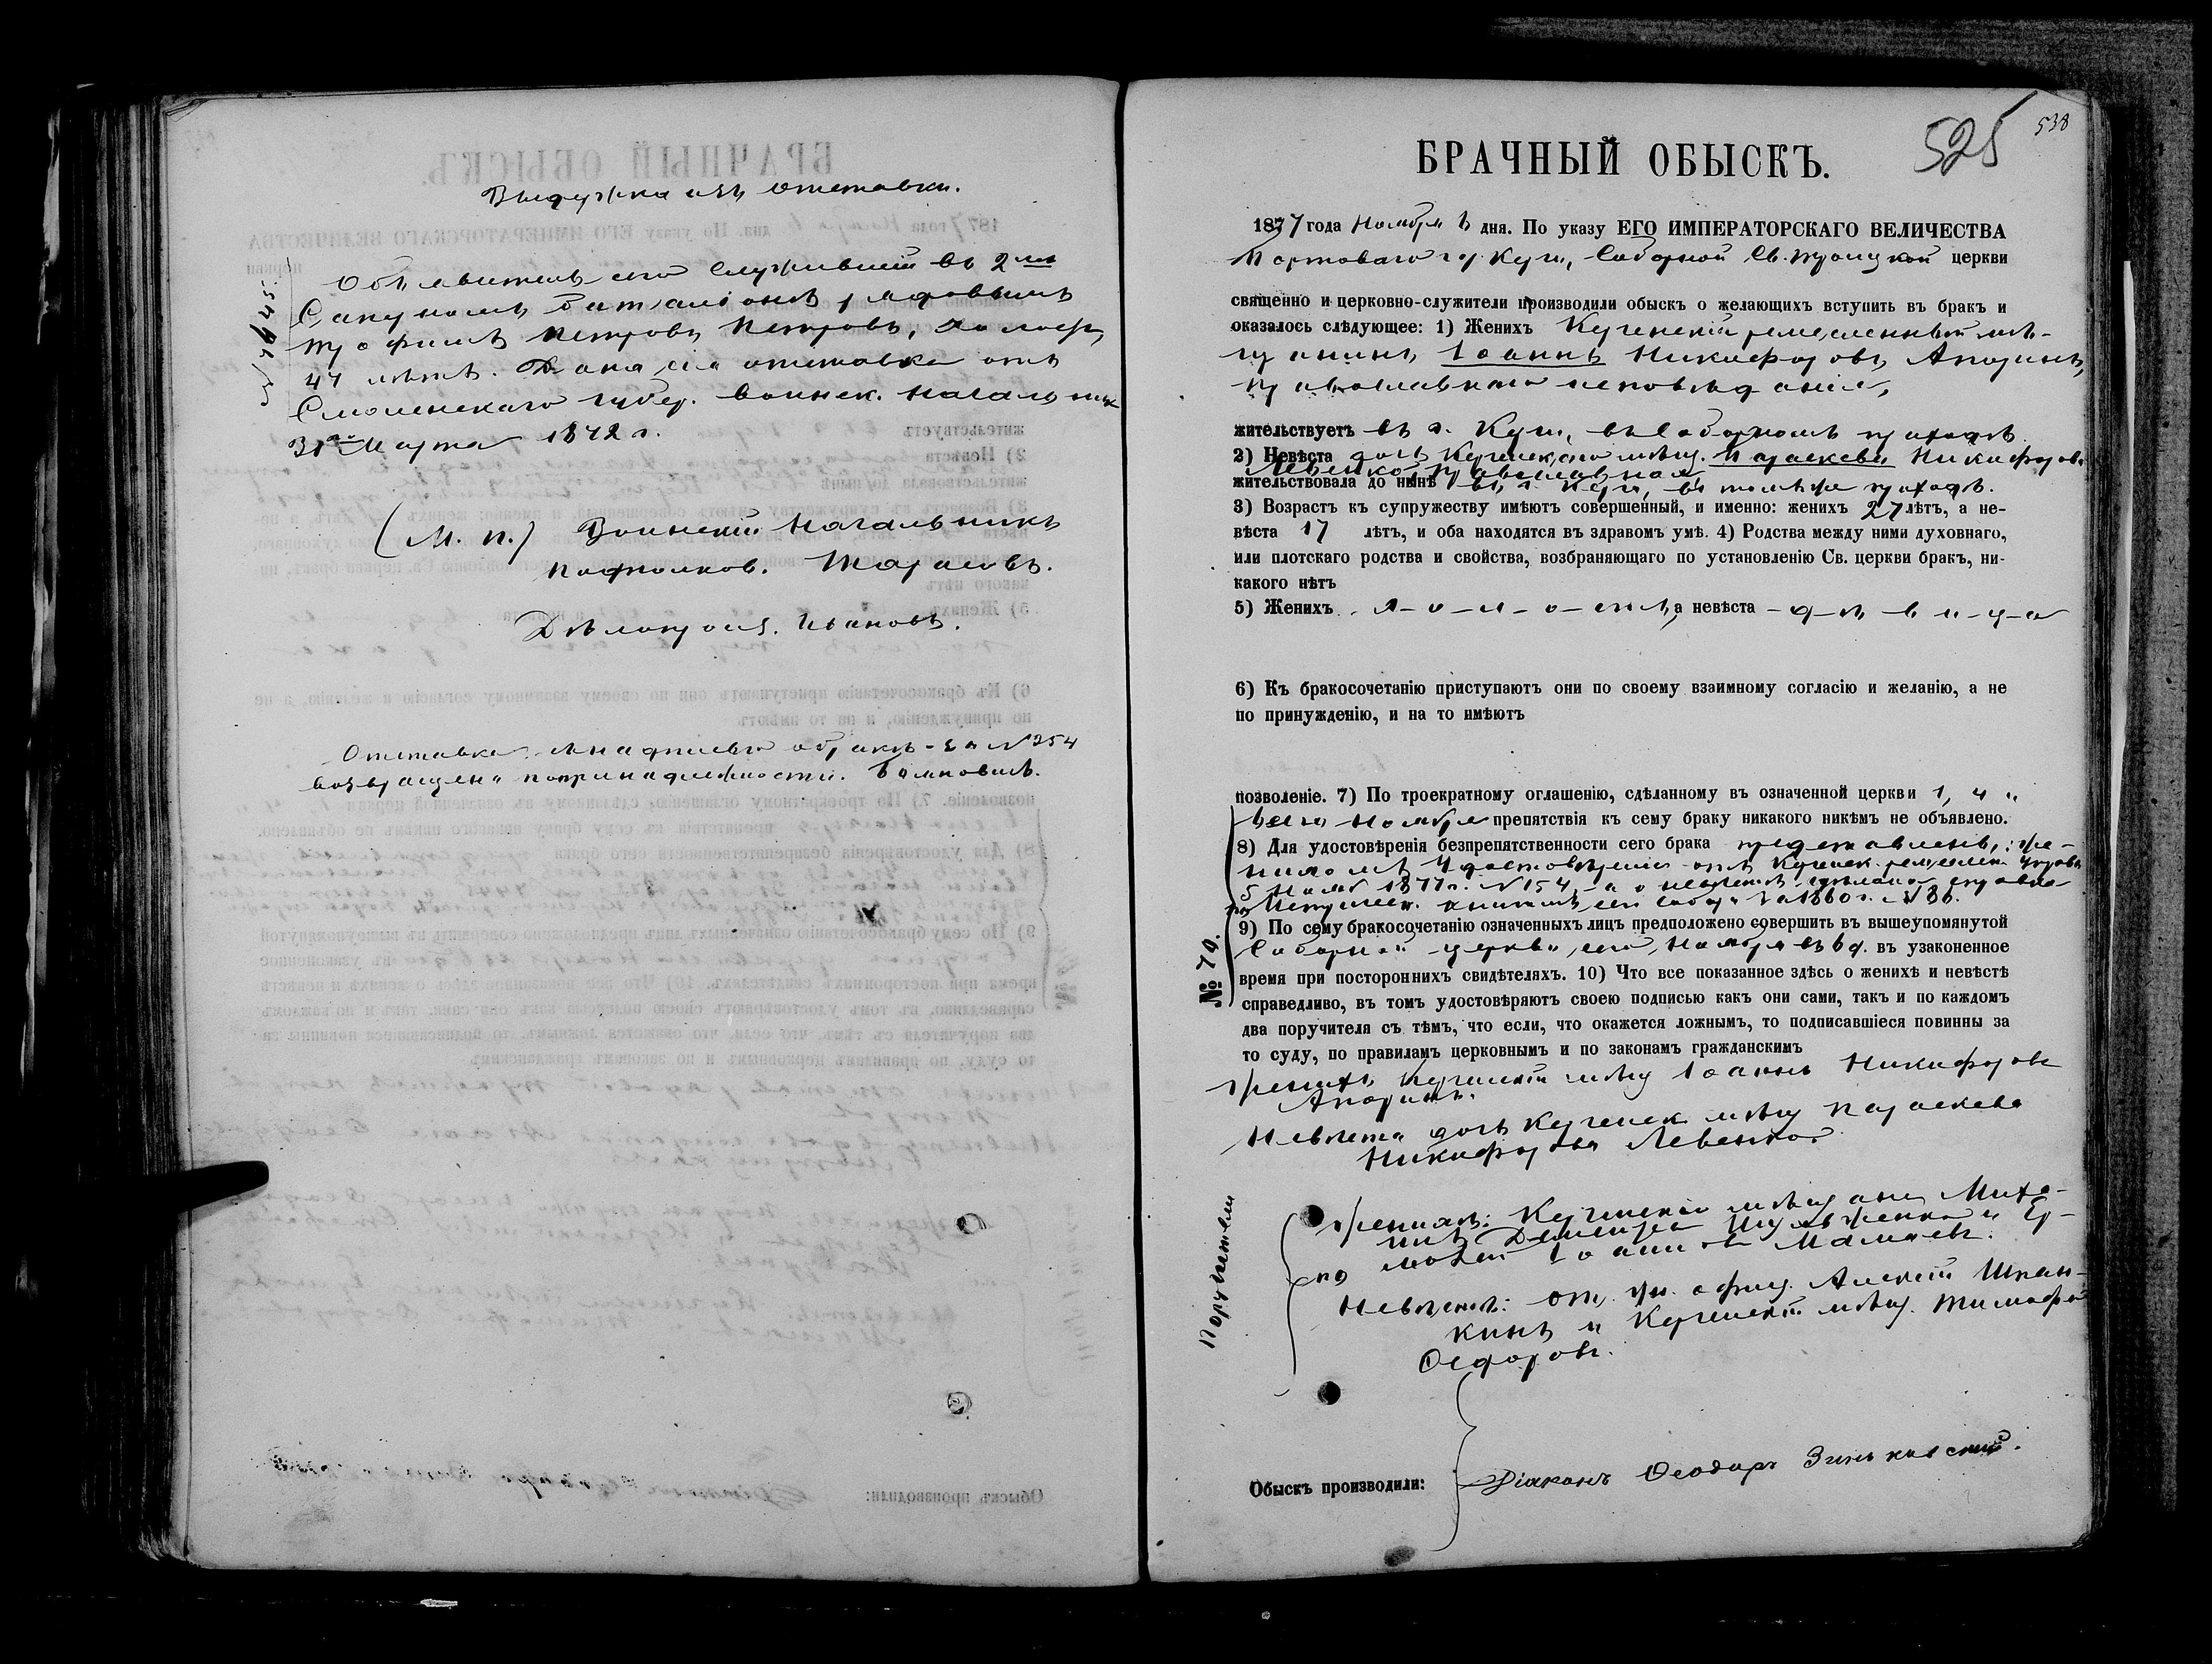 Выдержка изъ отставки.
Объявитель сего служившій въ 2мъ
баталіонѣ рядовымъ
Трофимъ Петровъ Петровъ,
47 лѣтъ. Дана сія отставка отъ
Смоленскаго Губер. Воинск. Начальника
31го Марта 1872 г.
(М. П.) Воинскій Начальникъ
Подполков. Тарасовъ.
Дѣлопроиз. Ивановъ.
Отставка съ надписью о бракѣ за № 254
возвращена по принадлежности.
525
538
БРАЧНЫЙ ОБЫСКЪ.
1877 года Ноября 6 дня. По указу ЕГО ИМПЕРАТОРСКАГО ВЕЛИЧЕСТВА
Портоваго гор. Керчи, Соборной Св. Троицкой церкви
священно и церковно-служители производили обыскъ о желающихъ вступить въ бракъ и
оказалось слѣдующее: 1) Женихъ Керченскій ремесленный мѣ-
щанинъ, Іоаннъ Никифоровъ Апаринъ,
православнаго исповѣданія,
жительствуетъ въ г. Керчи, въ Соборномъ приходѣ
2) Невѣста дочь Керченскаго мѣщ. Параскева Никифорова
Левенко, православная
жительствовала до нынѣ въ г. Керчи, въ томъ же приходѣ.
3) Возрастъ къ супружеству имѣютъ совершенный, и именно: женихъ 27 лѣтъ, а не-
вѣста 17 лѣтъ, и оба находятся въ здравомъ умѣ. 4) Родства между ними духовнаго,
или плотскаго родства и свойства, возбраняющаго по установленію Св. церкви бракъ, ни-
какого нѣтъ
5) Женихъ х-о-л-о-стъ, а невѣста - д-ѣ-в-и-ц-а
6) Къ бракосочетанію приступаютъ они по своему взаимному согласію и желанію, а не
по принужденію, и на то имѣютъ
позволеніе. 7) По троекратному оглашенію, сдѣланному въ означенной церкви 1, 4 "
6 сего Ноября препятствія къ сему браку никакого никѣмъ не объявлено.
8) Для удостовѣренія безпрепятственности сего брака представлены: же-
нихомъ Удостовѣреніе отъ Керченск. ремеслен. Управы
5 Нояб 1877 г. № 154, а о невѣстѣ сдѣлана справка
по Метрическ. книгамъ сего Собора за 1860 г. № 86.
9) По сему бракосочетанію означенныхъ лицъ предположено совершить въ вышеупомянутой
Соборной церкви, сего Ноября въ 6 д. въ узаконенное
№ 70.
время при постороннихъ свидѣтеляхъ. 10) Что все показанное здѣсь о женихѣ и невѣстѣ
справедливо, въ томъ удостовѣряютъ своею подписью какъ они сами, такъ и по каждомъ
два поручителя съ тѣмъ, что если, что окажется ложнымъ, то подписавшіеся повинны за
то суду, по правиламъ церковнымъ и по законамъ гражданскимъ
Женихъ Керченскій мѣщ Іоаннъ Никифоровъ
Апаринъ.
Невѣста дочь Керченск мѣщ Параскева
Никифорова Левенкова
Поручители
по
Женихѣ: Керченскіе мѣщане Миха-
илъ и Ер-
молай Іоанновъ Мамаевъ.
Невѣстѣ: От. ун. офиц. Алексѣй Шпан-
кинъ и Керченскій мѣщ. Тимофей
Федоровъ.
Обыскъ производили: Діаконъ Ѳеодоръ Зиньковскій.